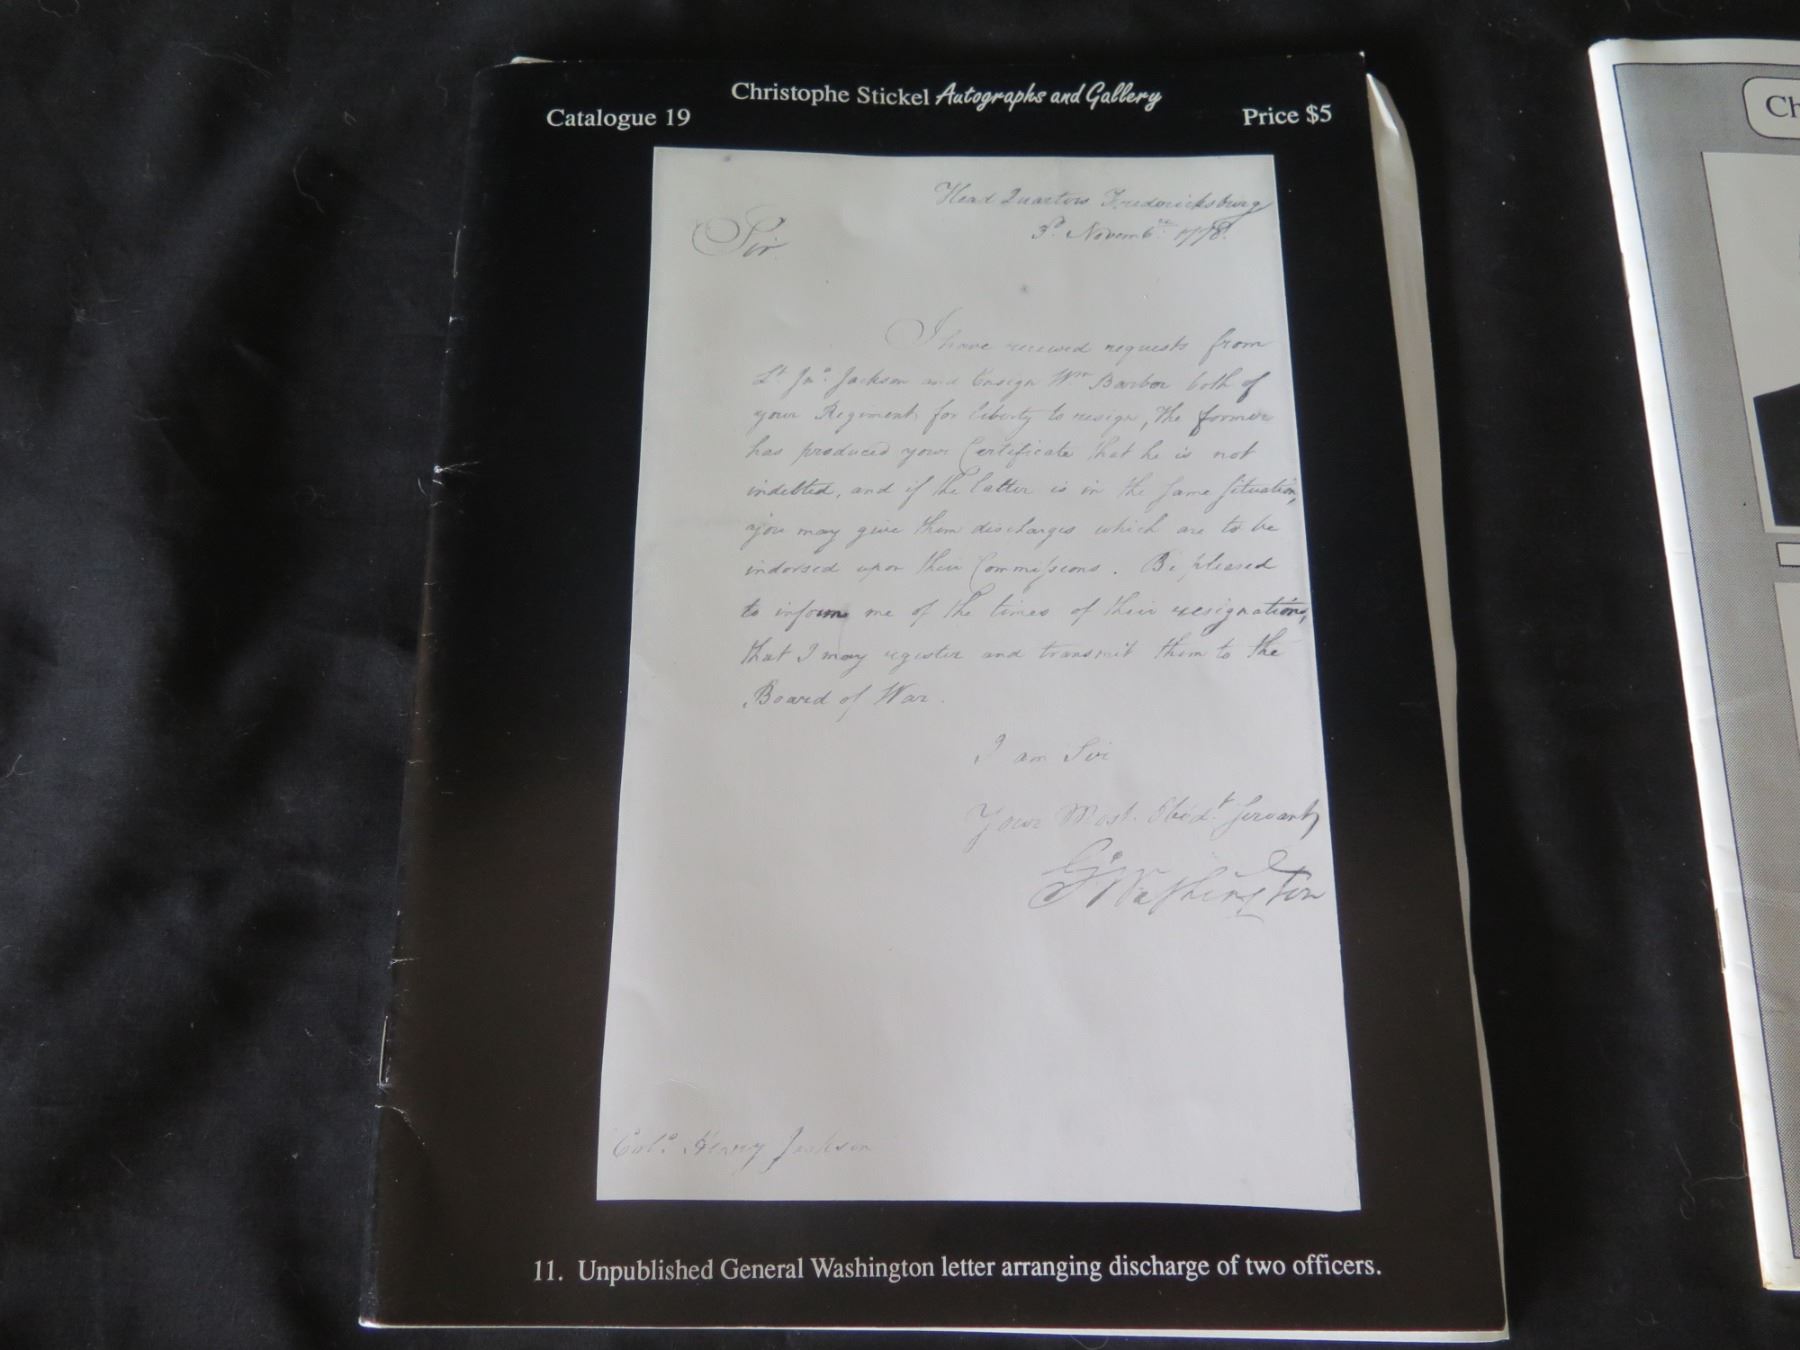 Christophe Stickel Autographs and Gallery
Catalogue 19
Price $5
Head Quarters Fredericksburg
3d. Novemb.er 1778.
Sir
I have received requests from
Lt. Jno. Jackson and Ensign Wm Barber both of
your Regiment, for liberty to resign, the former
has produced your Certificate that he is not
indebted, and if the latter is in the same situation,
you may give them discharges which are to be
indorsed upon their Commissions. Be pleased
to inform me of the times of their resignations,
that I may register and transmit them to the
Board of War.
I am Sir
Your Most. Obed.t Servant
Go Washington
Colo. Henry Jackson
11. Unpublished General Washington letter arranging discharge of two officers.
Ch